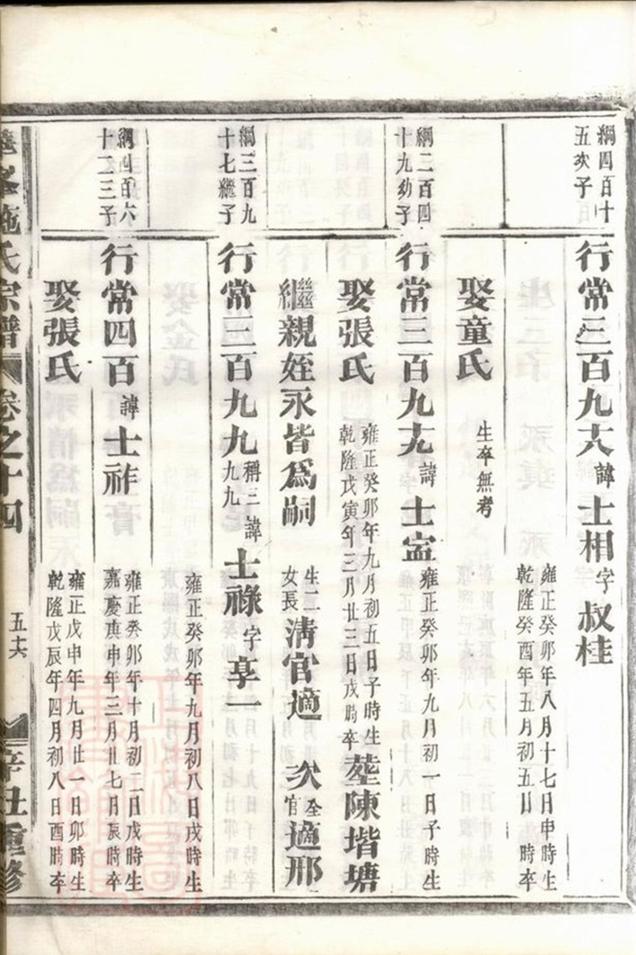 綱四百十
五次子
行常三百九大諱士相字叔桂
雍正癸卯年八月十七日申時生
乾隆癸酉年五月初五日
娶童氏
生卒無考
綱二百四
十九幼子
行常三百九九諱士寍
雍正癸卯年九月初一日子時生
娶張氏
雍正癸卯年九月初五日子時生
乾隆戊寅年三月廿三日戌時卒
塟陳堦塘
繼親姪永皆爲嗣
生二
女長
淸官適
次
全
官
適邢
綱三百九
十七繼子
行常三百九九
稱三
九九
諱士祿字享一
雍正癸卯年九月初八日戌時生
綱四百六
十二三子
行常四百諱士祚
雍正癸卯年十月初二日戌時生
嘉慶庚申年三月廿七日辰時卒
娶張氏
雍正戊申年九月廿一日卯時生
乾隆戊辰年四月初八日酉時卒
峯施氏宗譜
卷之十四
五十六
辛丑重修